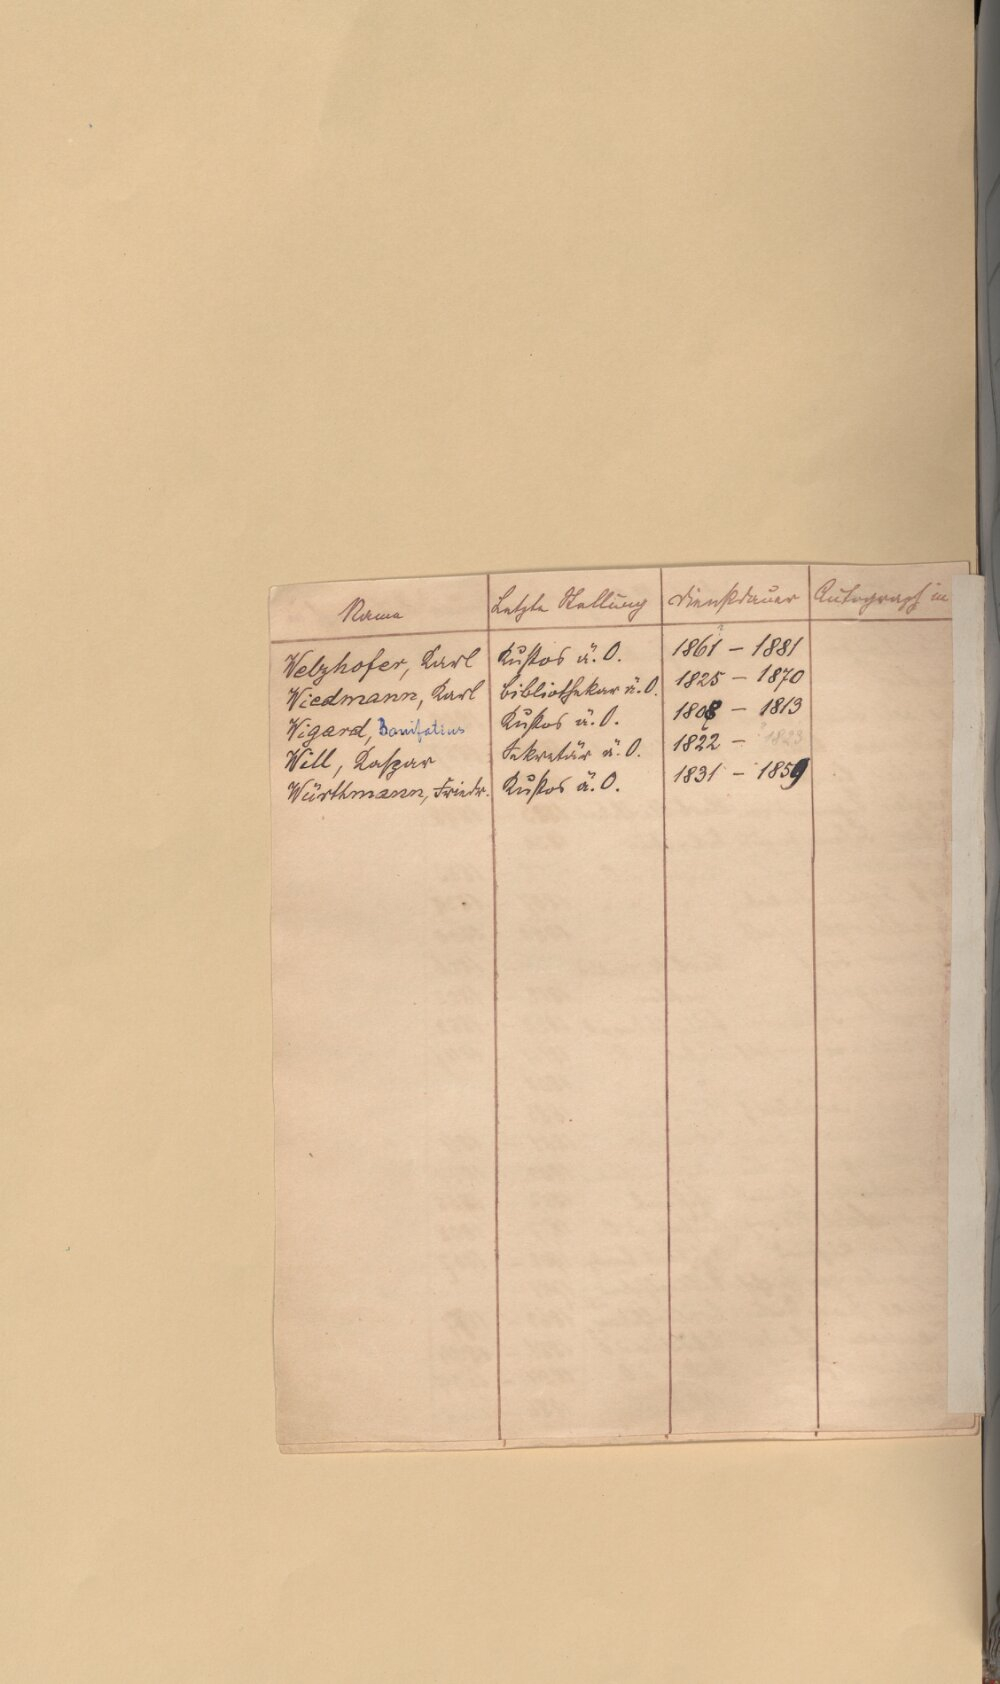 Name Letzte Stellung Dienstdauer Autograph in
Welzhofer, Karl Kustos ä. O. 1861 – 1881
Wiedmann, Karl Bibliothekar ä. O. 1825 – 1870
Wigard, Bonifatius Kustos ä. O. 1808 – 1813
Will, Kaspar Sekretär ä. O. 1822 – ? 1823
Würthmann, Friedr. Kustos ä. O. 1831 – 1859